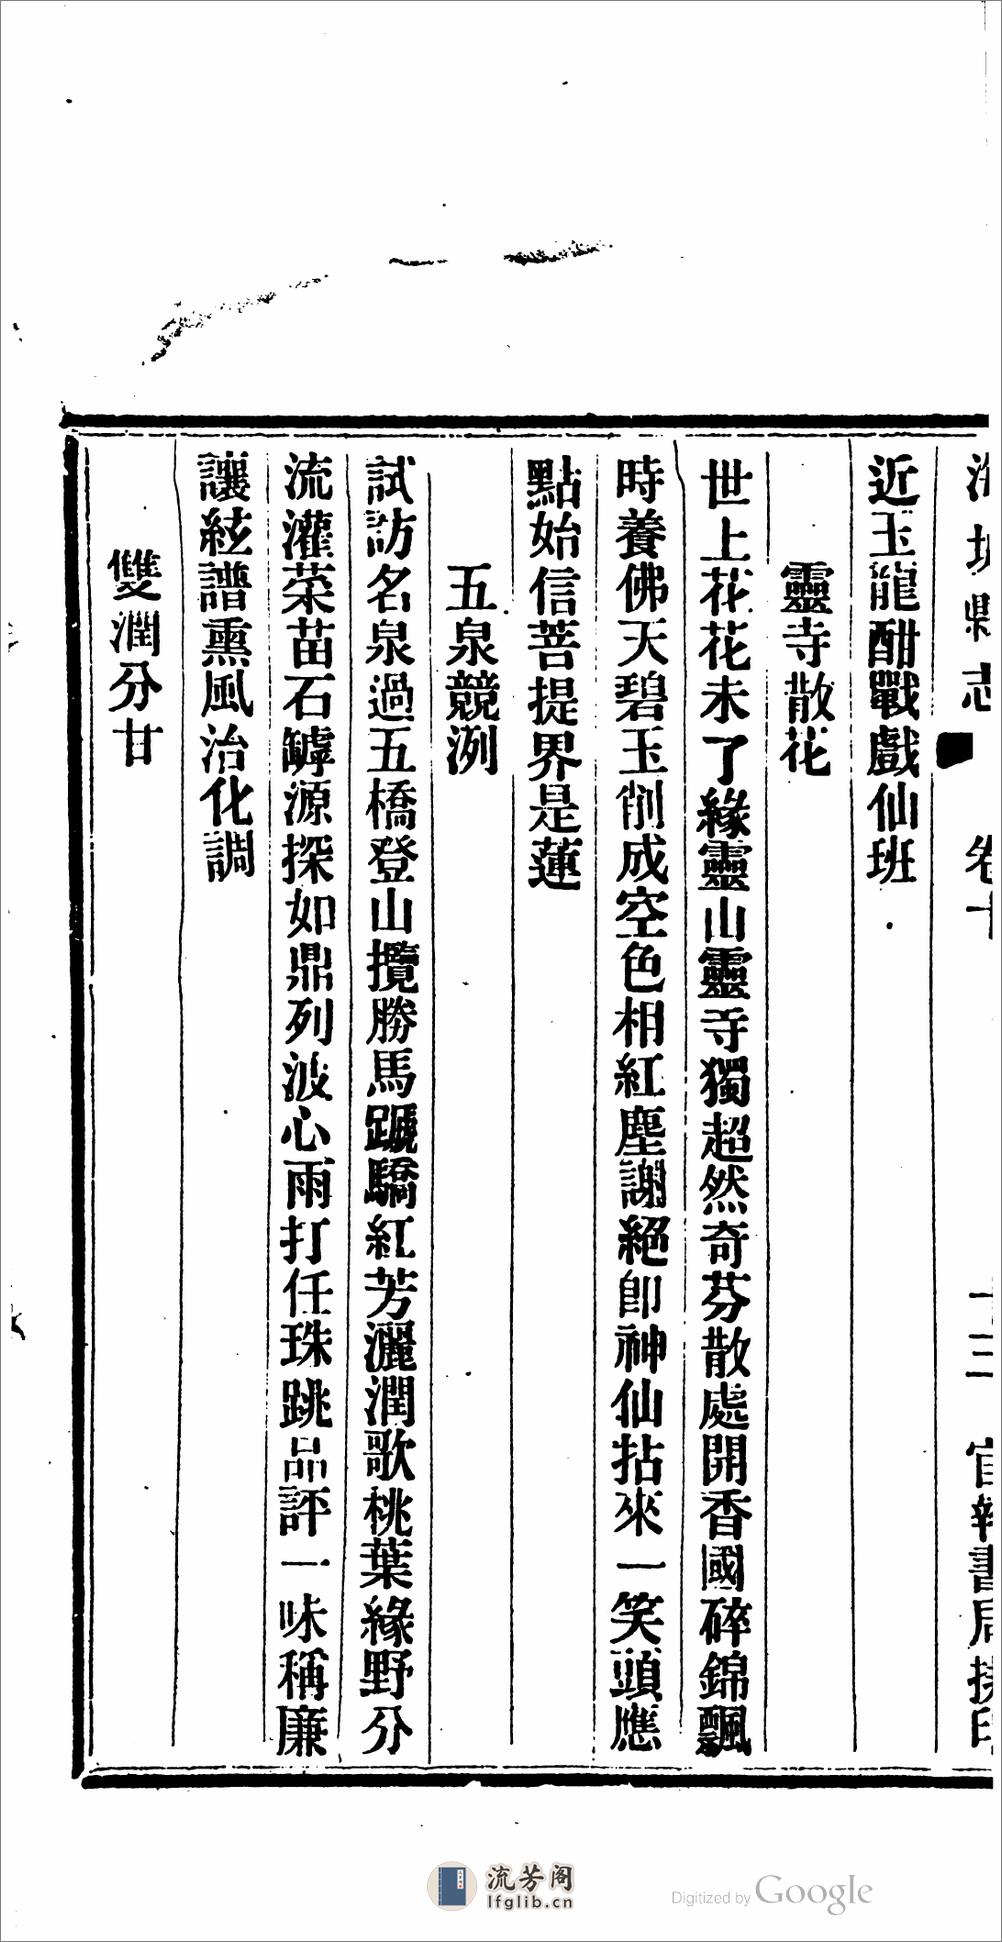 近玉龍酣戰戲仙班
靈寺散花
世上花花未了緣靈山靈寺獨超然奇芬散處開香國碎錦飄
時養佛天碧玉削成空色相紅塵謝絕卽神仙拈來一笑頭應
點始信菩提界是蓮
五泉競洌
試訪名泉過五橋登山攬勝馬蹏驕紅芳灑潤歌桃葉綠野分
流灌菜苗石罅源探如鼎列波心雨打任珠跳品評一味稱廉
讓絃譜熏風治化調
雙潤分甘
流芳阁
lfglib.cn
Digitized by Google